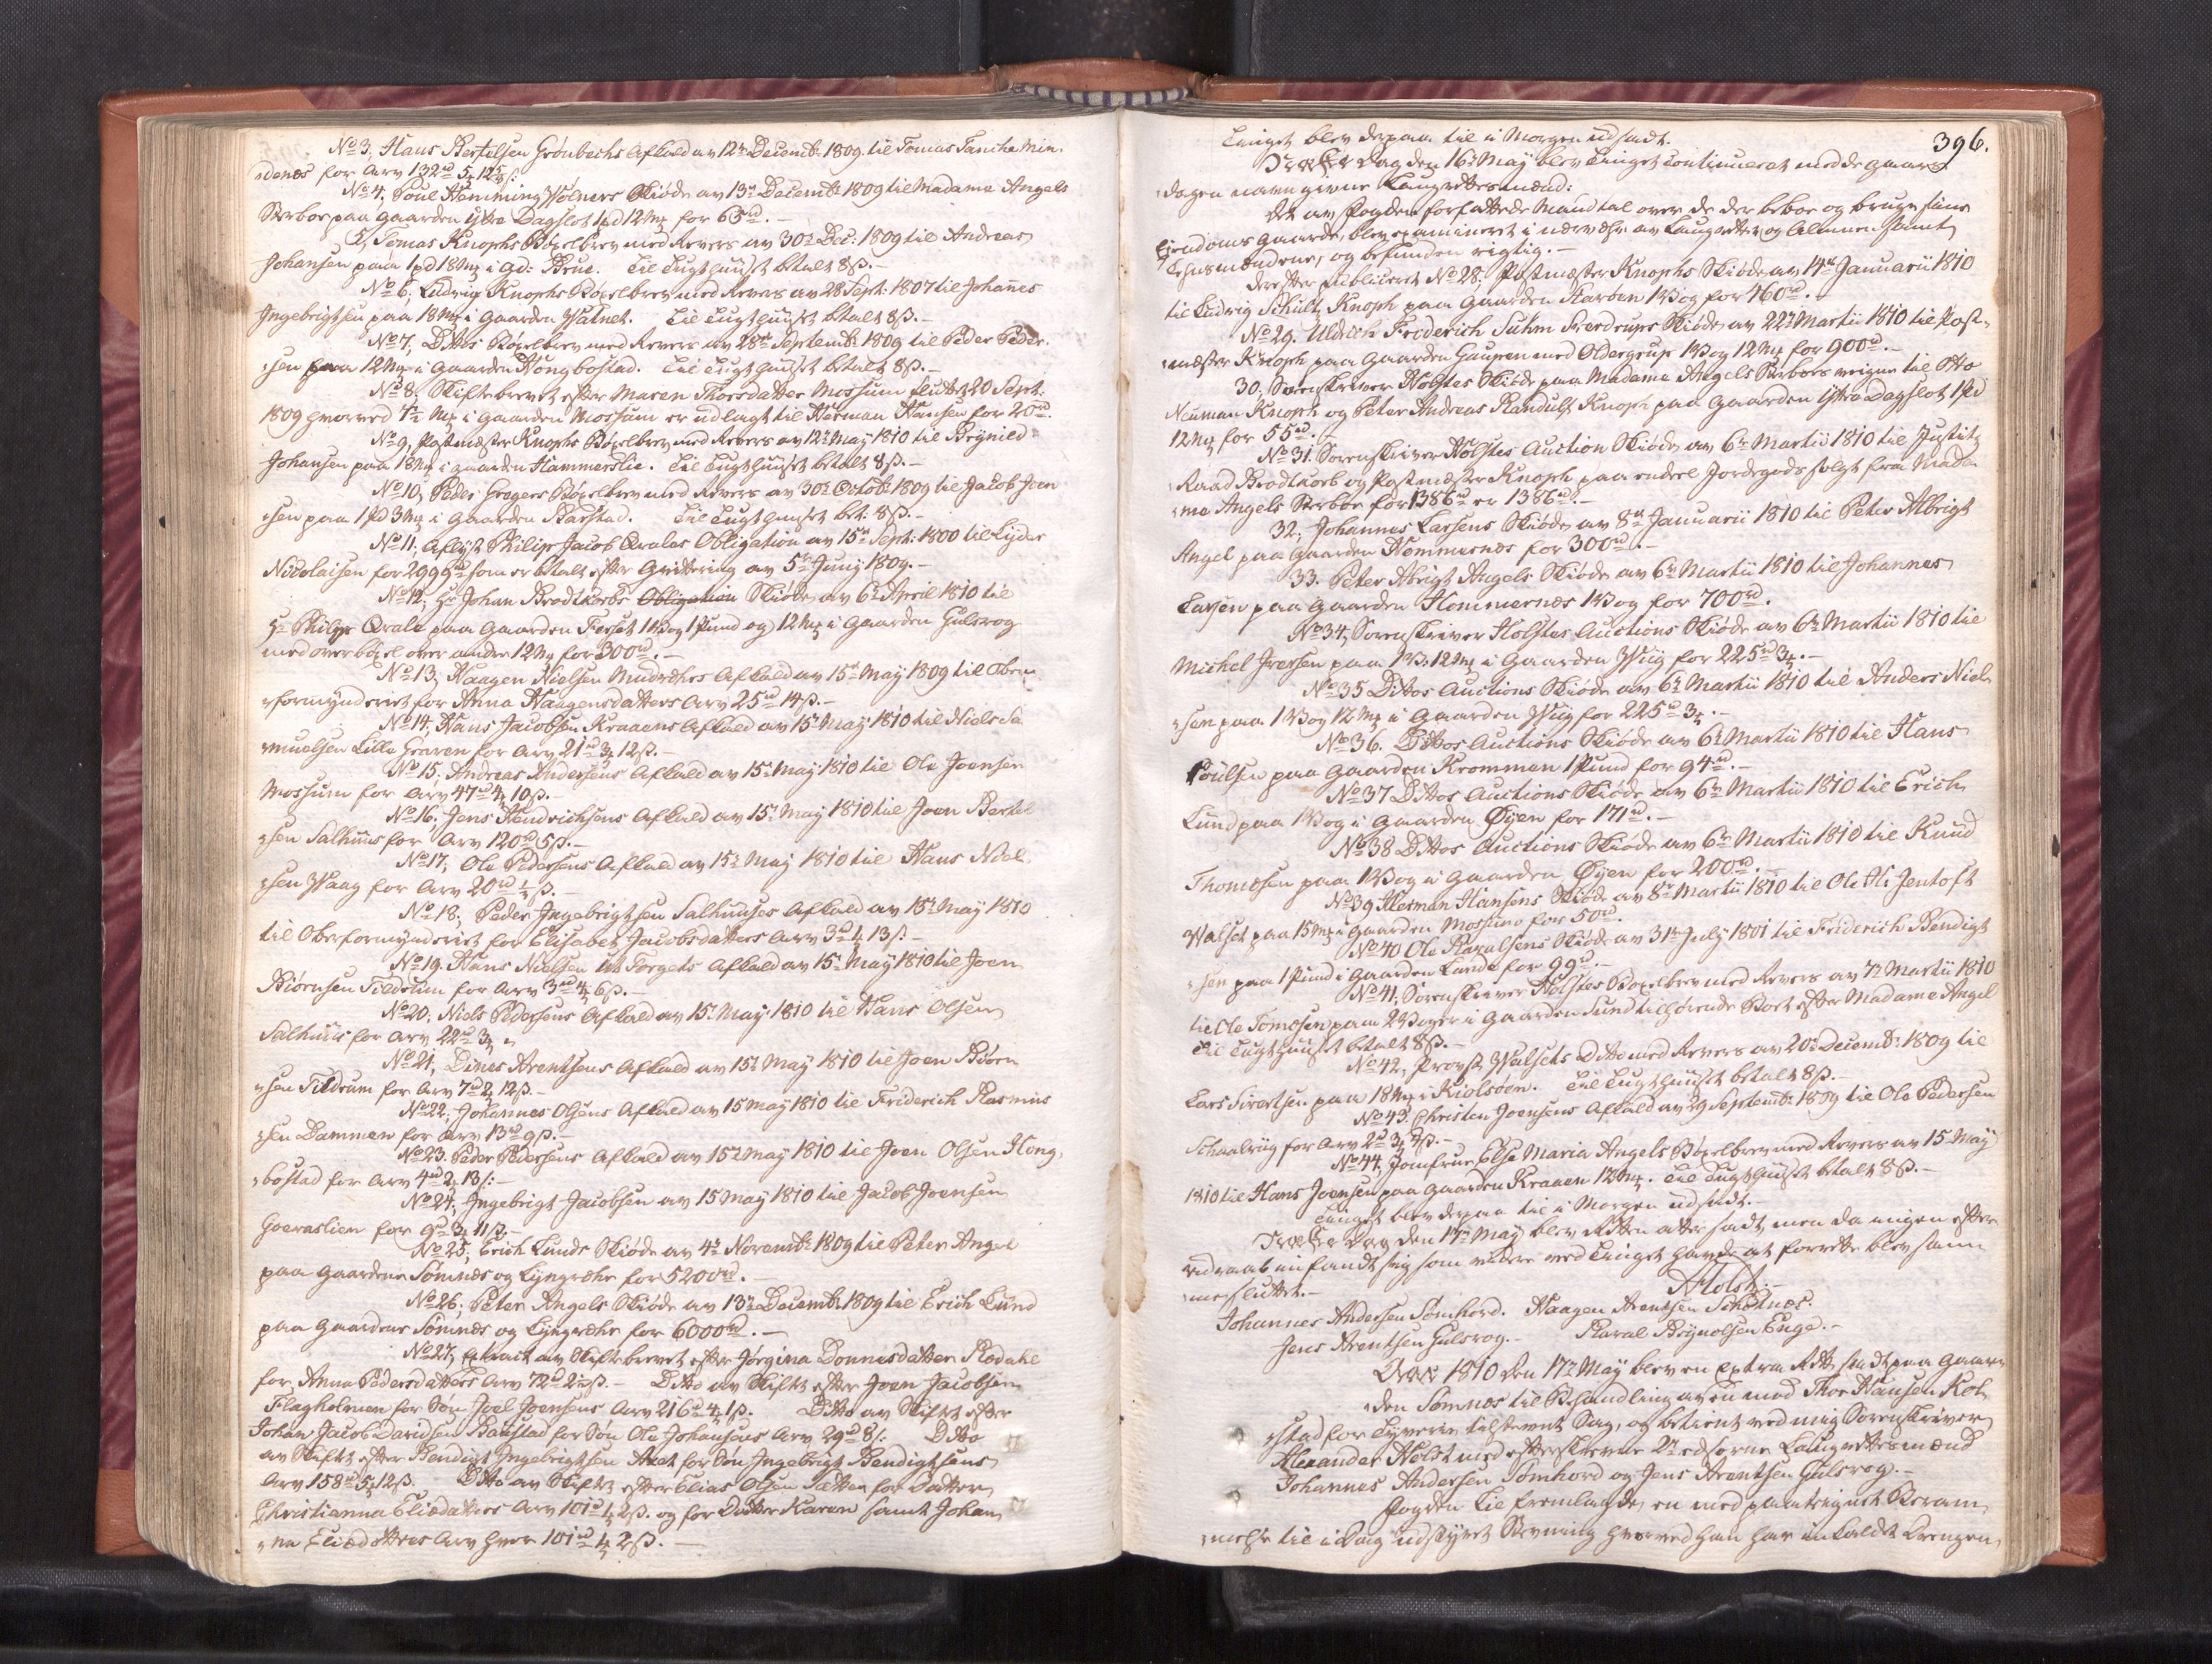 No 3, Hans Bertelsen Grønbechs Afkald av 12te Decemb: 1809. til Tomas Tancke Min-
denes for Arv 132rd 5 12ß.
No 4, Poul Hemming Wolners Skiøde av 13de Decemb: 1809 til Madame Angels
Sterboe paa Gaarden Yttre Dagslot 1pd 12Mk for 65rd.-
5, Tomas Knophs Bøxelbrev med Revers av 30te Dec: 1809 til Andreas
Johansen paa 1pd 18Mk i Gd: Brue. Til Tugthuuset betalt 8ß.-
No 6, Ludvig Knophs Bøxelbrev med Revers av 28 Sept: 1807 til Johannes
Ingebrigtsen paa 18Mk i Gaarden Watnet. Til Tugthuuset betalt 8ß.-
No 7, Dittos Bøxelbrev med Revers av 28de Septemb: 1809 til Peder Peder-
sen paa 12Mk i Gaarden Hongbostad. Til Tugthuuset betalt 8ß.-
No 8, Skiftebrevet efter Maren Thoresdatter Mossum sluttet 20 Sept:
1809 hvorved 7½ Mk i Gaarden Mossum er udlagt til Herman Hansen for 20rd.
No 9, Postmester Knophs Bøxelbrev med Revers av 12te May 1810 til Brynild
Johansen paa 18Mk i Gaarden Hammerslie. Til Tugthuuset betalt 8ß.-
No 10, Peder Gregers Bøxelbrev med Revers av 30te Octob: 1809 til Jacob Joen-
sen paa 1Pd 3Mk i Gaarden Barstad. Til Tugthuuset bet: 8ß.-
No 11, Aflyst Philip Jacob Qvales Obligation av 15de Sept: 1800 til Lyder
Nicolaisen for 2999rd som er betalt efter Qvittering av 5te Juny 1809.-
No 12, Hr Johan Brodtkorbs Obligation Skiøde av 6te April 1810 til
Hr Philip Qvale paa Gaarden Ferset 1Wog 1Pund og 12Mk i Gaarden Hulsrog
med overbøxel over andre 12Mk for 300rd.-
No 13, Haagen Nielsen Mudvehrs Afkald av 15de May 1809 til Over-
formynderiet for Anna Haagensdatters Arv 25rd 14ß.-
No 14, Hans Jacobsen Kraaens Afkald av 15de May 1810 til Niels Sa-
muelsen Lille Graven for Arv 21rd 3 12ß.-
No 15. Andreas Andersens Afkald av 15de May 1810 til Ole Joensen
Mossum for Arv 47rd 4 10ß.-
No 16, Jens Hendrichsens Afkald av 15de May 1810 til Joen Bertel-
sen Salhuus for Arv 120rd 5ß.-
No 17, Ole Pedersens Afkald av 15de May 1810 til Hans Niel-
sen Waag for Arv 20rd ½ß.-
No 18, Peder Ingebrigtsen Salhuuses Afkald av 15de May 1810
til Overformynderiet for Elisabet Jacobsdatters Arv 3rd 4 13ß-
No 19. Hans Nielsen Torgets Afkald av 15de May 1810 til Joen
Biørnsen Tildrum for Arv 3rd 4 6ß.-
No 20, Niels Pedersens Afkald av 15de May 1810 til Hans Olsen
Salhuus for Arv 22rd 3
No 21, Dines Arentsens Afkald av 15de May 1810 til Joen Biørn-
sen Tildrum for Arv 7rd 2 12ß.-
No 22, Johannes Olsens Afkald av 15 May 1810 til Friderich Rasmus-
sen Dammen for Arv 13rd 9ß.-
No 23. Peder Pedersens Afkald av 15de May 1810 til Joen Olsen Hong-
bostad for Arv 4rd 2 13ß:-
No 24, Ingebrigt Jacobsen av 15 May 1810 til Jacob Joensen
Goeraslien for 9rd 3 11ß.-
No 25, Erich Lunds Skiøde av 4de Novemb: 1809 til Peter Angel
paa Gaardene Sømnes og Lyngvehr for 5200rd.-
No 26, Peter Angels Skiøde av 13de Decemb: 1809 til Erich Lund
paa Gaardene Sømnes og Lyngvehr for 6000rd.-
No 27, Extract av Skiftebrevet efter Jørgina Donnisdatter Rødahl
for Anna Pedersdatters Arv 72rd 2 ß.- Ditto av Skiftet efter Joen Jacobsen
Flagholmen for Søn Joel Joensens Arv 216rd 4 1ß. Ditto av Skiftet efter
Johan Jacob Davidsen Baustad for Søn Ole Johansens Arv 29rd 8ß: Ditto
av Skiftet efter Bendigt Ingebrigtsen Axet for Søn Ingebrigt Bendigtsens
Arv 158rd 5 12ß. Ditto av Skiftet efter Elias Olsen Satten for Datter
Christianna Eliædatters Arv 101rd 4 2ß. og for Datter Karen samt Johan-
na Eliædatters Arv hver 101rd 4 2ß.-
396.
Tinget blev derpaa til i Morgen udsadt.
Næste Dag den 16de May blev Tinget Continueret med de Gaars
dagen navngivne Laugrettesmænd:
Det av Fogden forfattede Mandtal over de der beboe og bruge sine
Eiendoms Gaarde, blev examineret i nærvehr av Laugrettet og Almuen samt
Lehnsmændene, og befunden rigtig.-
Derefter publiceret No 28, Postmester Knophs Skiøde av 14de Januarii 1810
til Ludvig Schult Knoph paa Gaarden Skarven 1Wog for 460rd.-
No 29. Uldrich Friderich Suhm Sverdrups Skiøde av 22de Martii 1810 til Post-
mæster Knoph paa Gaarden Gaupen med Oldergrup 1Wog 12Mk for 900rd.-
30, Sorenskriver Holstes Skiøde paa Madame Angels Sterboes veigne til Ho
Neuman Knoph og Peter Andreas Randulf Knoph paa Gaarden Yttre Dagslot 1Pd
12Mk for 55rd.
No 31. Sorenskriver Holstes Auction Skiøde av 6te Martii 1810 til Justitz
Raad Brodtkorb og Postmæster Knoph paa endeel Jordegods solgt fra Mada-
me Angels Sterboe for 1386rd er 1386rd.-
32, Johannes Larsens Skiøde av 8de Januarii 1810 til Peter Albrigt
Angel paa Gaarden Hommernes for 300rd.-
33. Peter Abrigt Angels Skiøde av 6te Martii 1810 til Johannes
Larsen paa Gaarden Hommernes 1Wog for 700rd.
No 34, Sorenskriver Holstes Auctions Skiøde av 6te Martii 1810 til
Michel Iversen paa 1W: 12Mk i Gaarden Wiig for 225rd 3.-
No 35 Dittos Auctions Skiøde av 6te Martii 1810 til Anders Niel-
sen paa 1Wog 12Mk i Gaarden Wiig for 225rd 3.-
No 36. Dittos Auctions Skiøde av 6te Martii 1810 til Hans
Poulsen paa Gaarden Krommen 1Pund for 94rd.-
No 37 Dittos Auctions Skiøde av 6te Martii 1810 til Erich
Lund paa 1Wog i Gaarden Øyen for 171rd.-
No 38 Dittos Auctions Skiøde av 6te Martii 1810 til Knud
Thomesen paa 1Wog i Gaarden Øyen for 200rd.-
No 39 Herman Hansens Skiøde av 8de Martii 1810 til Ole Jentoft
Walset paa 15Mk i Gaarden Mossum for 50rd.
No 40 Ole Ravalsens Skiøde av 31te July 1801 til Friderich Bendigt-
sen paa 1Pund i Gaarden Lande for 99rd.-
No 41, Sorenskriver Holstes Boxelbrev med Revers av 7de Martii 1810
til Ole Tomesen paa 2Woger i Gaarden Sund tilhørende Boet efter Madame Angel
Til Tugthuuset betalt 8ß.-
No 42, Provst Walsets Ditto med Revers av 20de Decemb: 1809 til
Lars Sivertsen paa 18Mk i Kiolsøen. Til Tugthuuset betalt 8ß.-
No 43. Christen Joensens Afkald av 29 Septemb: 1809 til Ole Pedersen
Schaalviig for Arv 2rd 3 7ß.-
No 44, Jomfrue Else Maria Angels Bøxelbrev med Revers av 15 May
1810 til Hans Joensen paa Gaarden Kraaen 12Mk. Til Tugthuuset betalt 8ß.-
Tinget blev derpaa til i Morgen udsadt.-
Næste Dag den 17de May blev Retten atter sadt, men da ingen efter
udraab indfandt sig som videre ved Tinget havde at forrette blev sam-
me sluttet.-
AHolst:-
Johannes Andersen Sømhord. Haagen Arentsen Schotnes.
Jens Arentsen Hulsrog.- Raval Brynolsen Enge.-
Aar 1810 den 17de May blev en Extra Ret sadt paa Gaar-
den Sømnes til Behandling av en mod Thor Hansen Kol-
stad for Tyverie tilstevnt Sag, og betient ved mig Sorenskriver
Alexander Holst med efterskrevne 2de edsorne Laugrettesmænd
Johannes Andersen Sømhord og Jens Arentsen Hulsrog.-
Fogden Lie fremlagde en med paategnet Beram-
melse til i Dag udstædt Stevning hvorved han har indkaldt Drengen